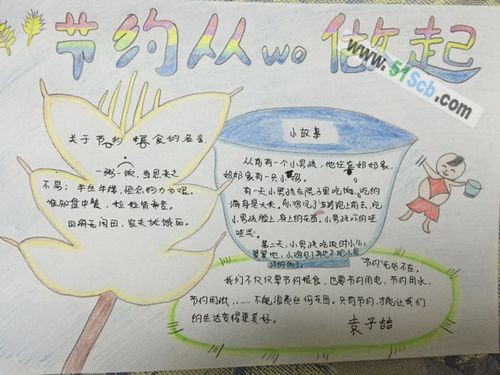 节约从wo做起
www.51Scb.com
关于节约粮食的名言
一粥一饭,当思来之
不易;半丝半缕,恒念物力方艰。
谁知盘中餐,粒粒皆辛苦。
四海无闲田,农夫犹饿死。
小故事
从前有一个小男孩,他住在奶奶家,
奶奶家有一只小鸡。
有一天小男孩在院子里吃饭,吃的
满身是
小男孩脸上,身上的东西。小男孩吓的哇
哇
第二天,小男孩吃饭时小心
节约无处不在。
我们不仅仅要节约粮食,也要节约用电,节约用水,
节约用纸……不能浪费任何东西。只有节约,才能让我们
的生活变得更美好。
袁子喆